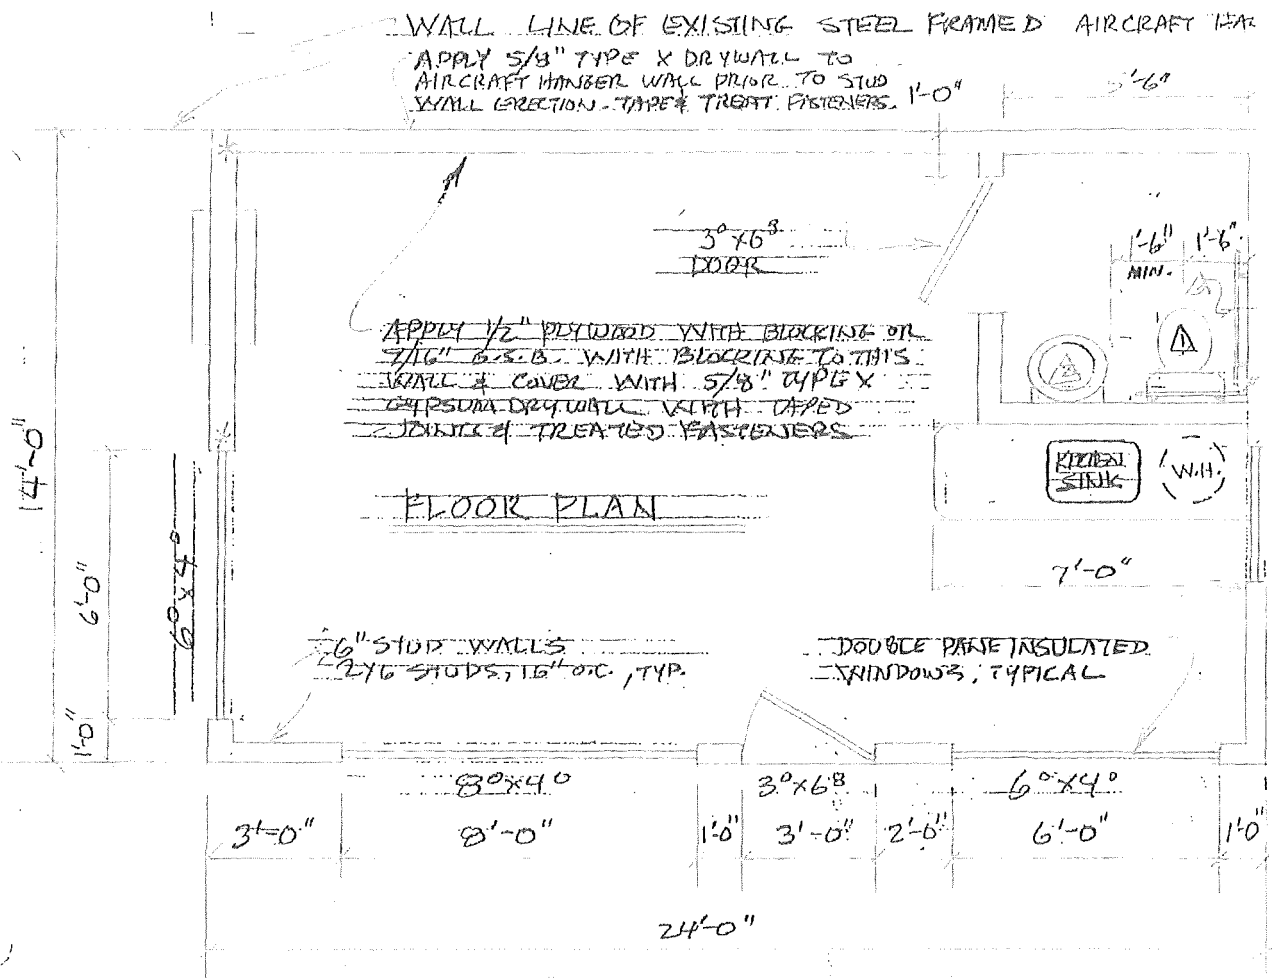 WALL LINE OF EXISTING STEEL FRAMED AIRCRAFT
APPLY 5/8" TYPE X DRYWALL TO
AIRCRAFT HANGER WALL PRIOR TO STUD
WALL ERECTION. TAPE & TREAT FASTENERS.
1'-0"
5'-6"
3⁰x6⁸
DOOR
1'-6"
MIN.
1'-6"
APPLY 1/2" PLYWOOD WITH BLOCKING OR
7/16" O.S.B. WITH BLOCKING TO THIS
WALL & COVER WITH 5/8" TYPE X
GYPSUM DRYWALL WITH TAPED
JOINTS & TREATED FASTENERS
1
2
KITCHEN
SINK
W.H.
14'-0"
FLOOR PLAN
7'-0"
6'-0"
6⁰x4⁰
6" STUD WALLS
2x6 STUDS, 16" O.C., TYP.
DOUBLE PANE INSULATED
WINDOWS, TYPICAL
1'-0"
8⁰x4⁰
3⁰x6⁸
6⁰x4⁰
3'-0"
8'-0"
1'-0"
3'-0"
2'-0"
6'-0"
1'-0"
24'-0"